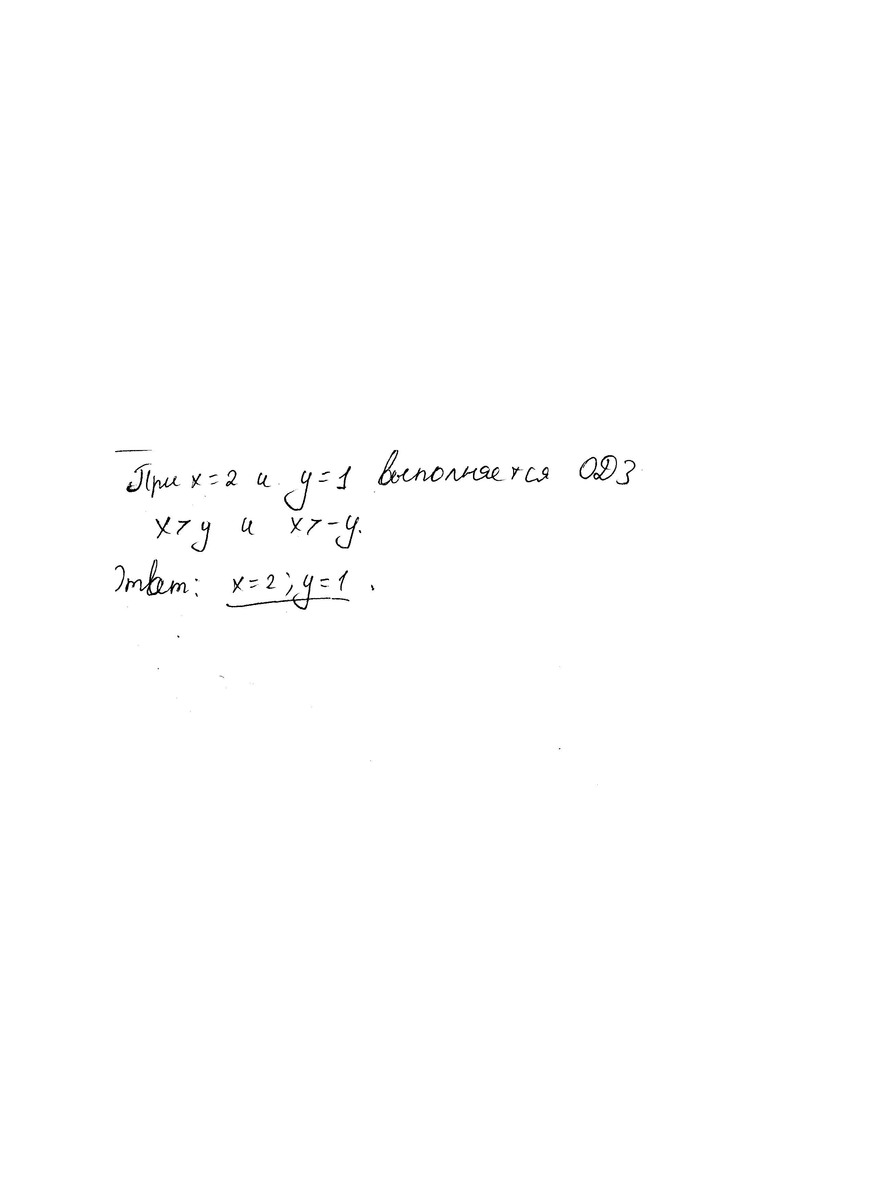 При x=2 и y=1 выполняется ОДЗ
x>y и x>-y.
Ответ: x=2; y=1.